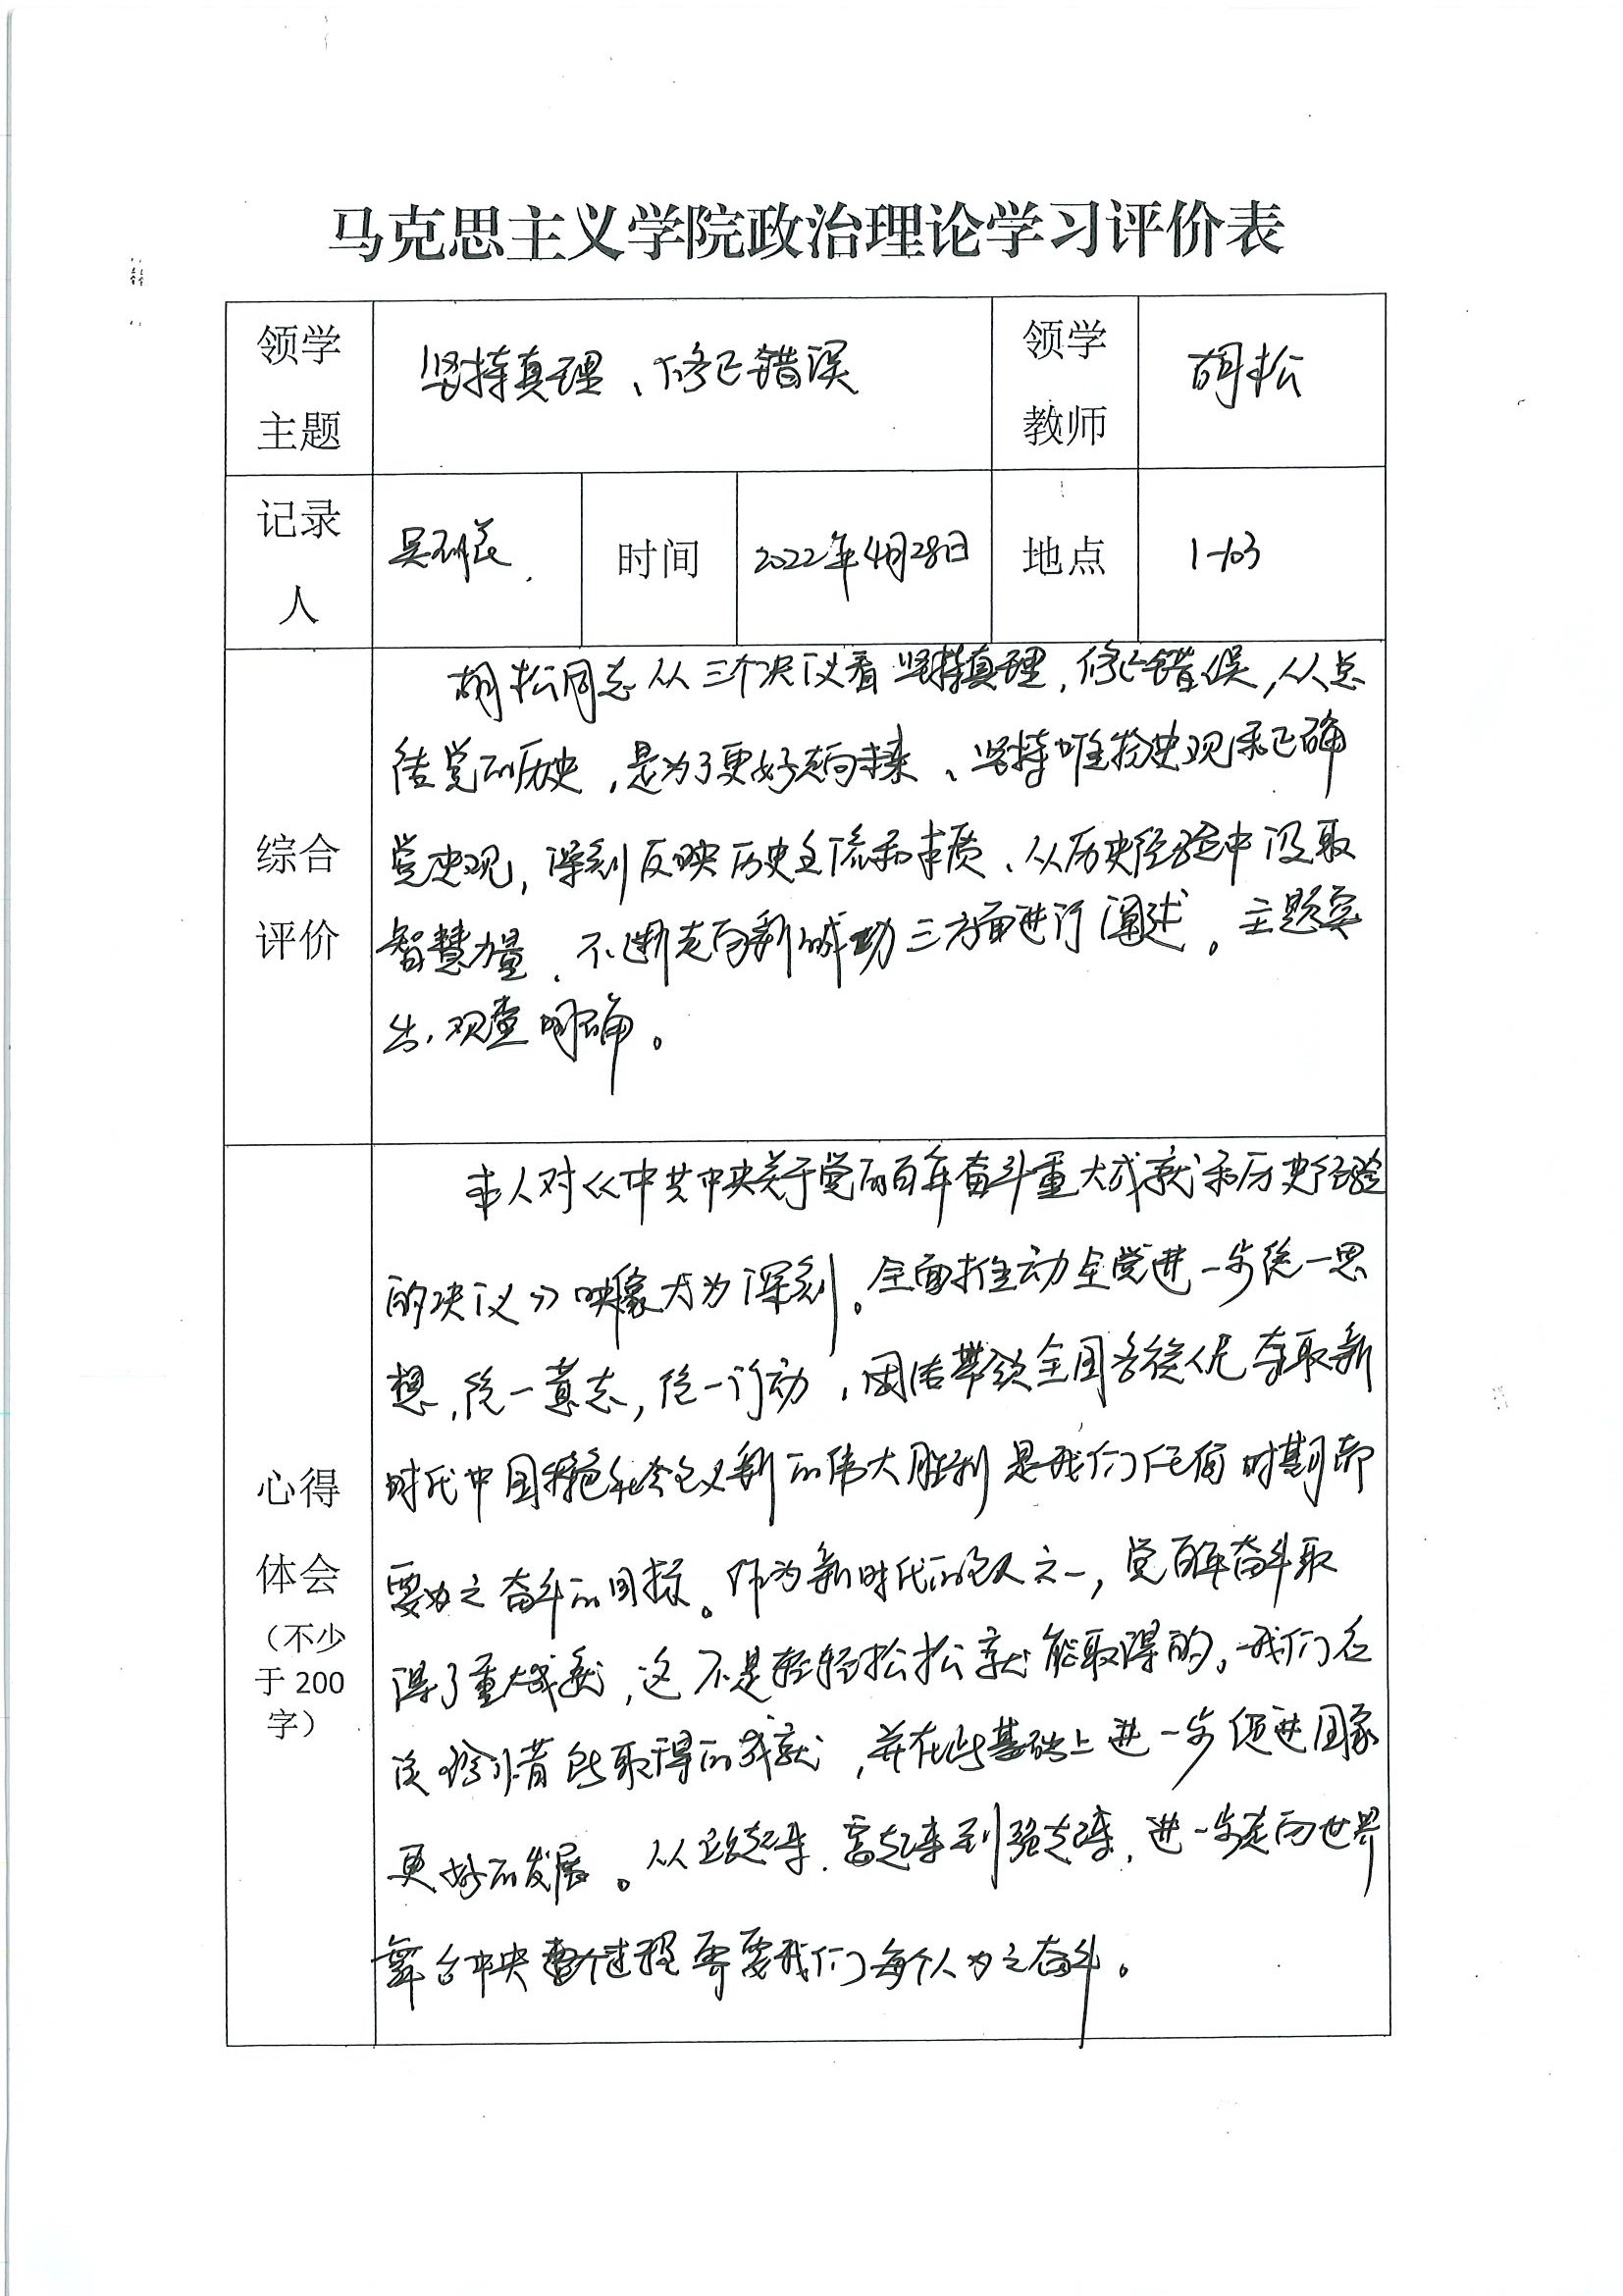 马克思主义学院政治理论学习评价表
领学主题
坚持真理、修正错误
领学教师
胡松
记录人
吴
时间
2022年4月28日
地点
1-103
综合评价
胡松同志从三个决议看坚持真理,修正错误,从总
结党的历史,是为了更好走向未来、坚持唯物史观和正确
党史观,深刻反映历史主流和本质、从历史经验中汲取
智慧力量、不断走向新的成功三方面进行阐述。主题突
出,观点明确。
心得体会
(不少于200字)
本人对《中共中央关于党的百年奋斗重大成就和历史经验
的决议》映象尤为深刻。全面推动全党进一步统一思
想,统一意志,统一行动,团结带领全国各族人民夺取新
时代中国特色社会主义新的伟大胜利是我们任何时期都
要为之奋斗的目标。作为新时代的之一,党百年奋斗取
得了重大成就,这不是轻轻松松就能取得的,我们应
该珍惜所取得的成就,并在此基础上进一步促进国家
更好的发展。从站起来、富起来到强起来,进一步走向世界
舞台中央整个过程需要我们每个人为之奋斗。